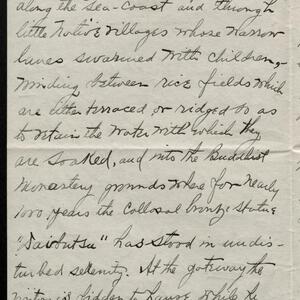 along the Sea-Coast and through
little Native Villages whose narrow
lanes swarmed with children,-
winding between rice fields which
are either terraced or ridged so as
to retain the water with which they
are soaked, and into the Buddhist
Monastery grounds where for nearly
1000 years the Collosal bronze statue
"Daibutsu" has stood in undis-
turbed serenity. At the gateway the
visitor is bidden to pause while he